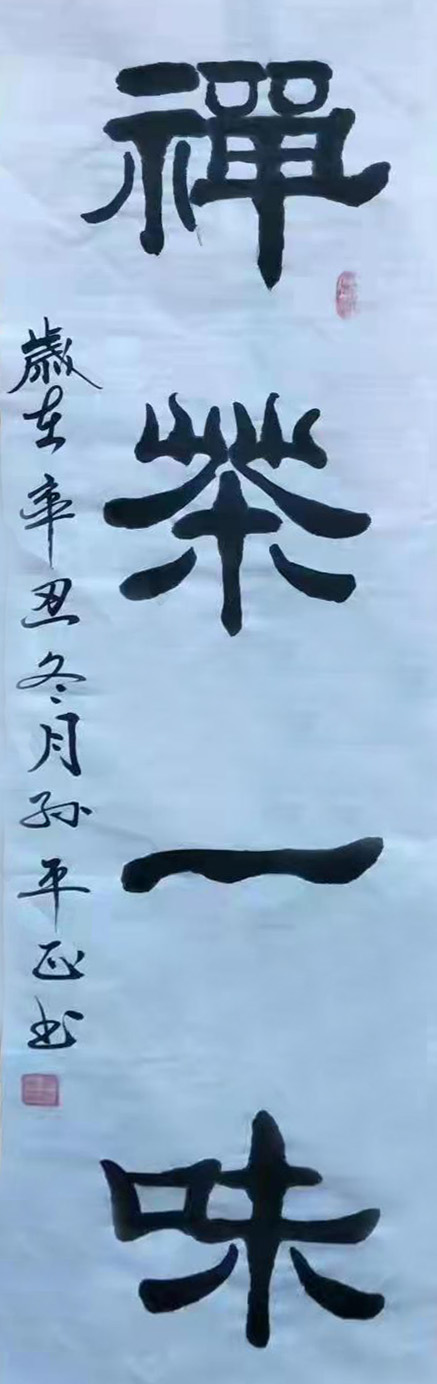 禪茶一味
歲在辛丑冬月孙平正书